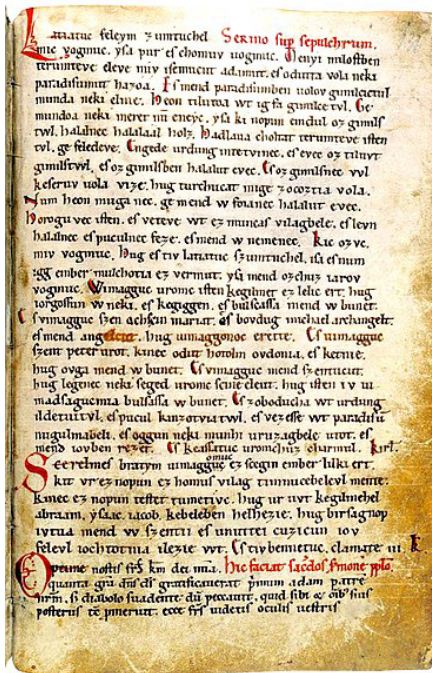 Latiatuc feleym zumtuchel Sermo sup sepulchrum.
mic vogmuc. ysa pur es chomuv uogmuc. Menyi milostben
terumteve eleve miv isemucut adamut. es odutta vola neki
paradisumut hazoa. Es mend paradisumben uolov gimilcictul
munda neki elnie. Heon tilutoa wt ig fa gimilce tvl. Ge
mundoa neki meret num eneyc. ysa ki nopun emdul oz gimils
twl. halalnec halalaal holz. Hadlaua choltat terumteve isten
tvl. ge feledeve. Engede urdung intetvinec. es evec oz tiluvt
gimilstvvl. es oz gimilsben halalut evec. Es oz gimilsnec vvl
keseruv uola vize. hug turchucat mige zocoztia vola.
Num heon muga nec. ge mend w foianec halalut evec.
Horogu vec isten. es veteve wt ez muncas vilagbele. es levn
halalnec es puculnec feze. es mend w nemenec. Kic ozvc.
miv vogmuc. Hug es tiv latiatuc szumtuchel. isa es num
igg ember mulchotia ez vermut. ysa mend ozchuz iarov
vogmuc. Wimagguc uromc isten kegilmet ez lelic ert. hug
iorgossun w neki. es kegiggen. es bulsassa mend w bunet.
Es vimagguc szen achscin mariat. es bovdug michael archangelt.
es mend angelcut. hug uimaggonoc erette. Es uimagguc
szent peter urot. kinec odut hotolm ovdonia. es ketnie.
hug ovga mend w bunet. Es vimagguc mend szentucut.
hug legenec neki seged uromc scine eleut. hug isten iv ui
madsagucmia bulsassa w bunet. Es zoboducha wt urdung
ildetuitvl. es pucul kinzotviatvvl. es vezesse wt paradisu
nugulmabeli. es oggun neki munhi uruzagbele utot. es
mend iovben rezet. Es keassatuc uromchuz charmul. kirl.
Scerelmes bratym uimagguc omuc ez scegin ember lilki ert.
kit vr ez nopun ez homus vilag timnucebelevl mente.
kinec ez nopun testet tumetivc. hug ur uvt kegilmehel
abraam. ysaac. iacob. kebeleben helhezie. hug birsagnop
ivtva mend w szentii es unuttei cuzicun iov
felevl iochtotnia ilezie wt. Es tiv bennetuc. clamate iii. k.
Optime nostis frs kmi dei mia. Hic faciat sacdos smone pplo.
quanta gra dns ds gratificaverat pmum adam patre
nrm. et diabolo suadente du peccauit. quid sibi et oib suis
posteris te pmeruit. ecce frs videtis oculis uestris